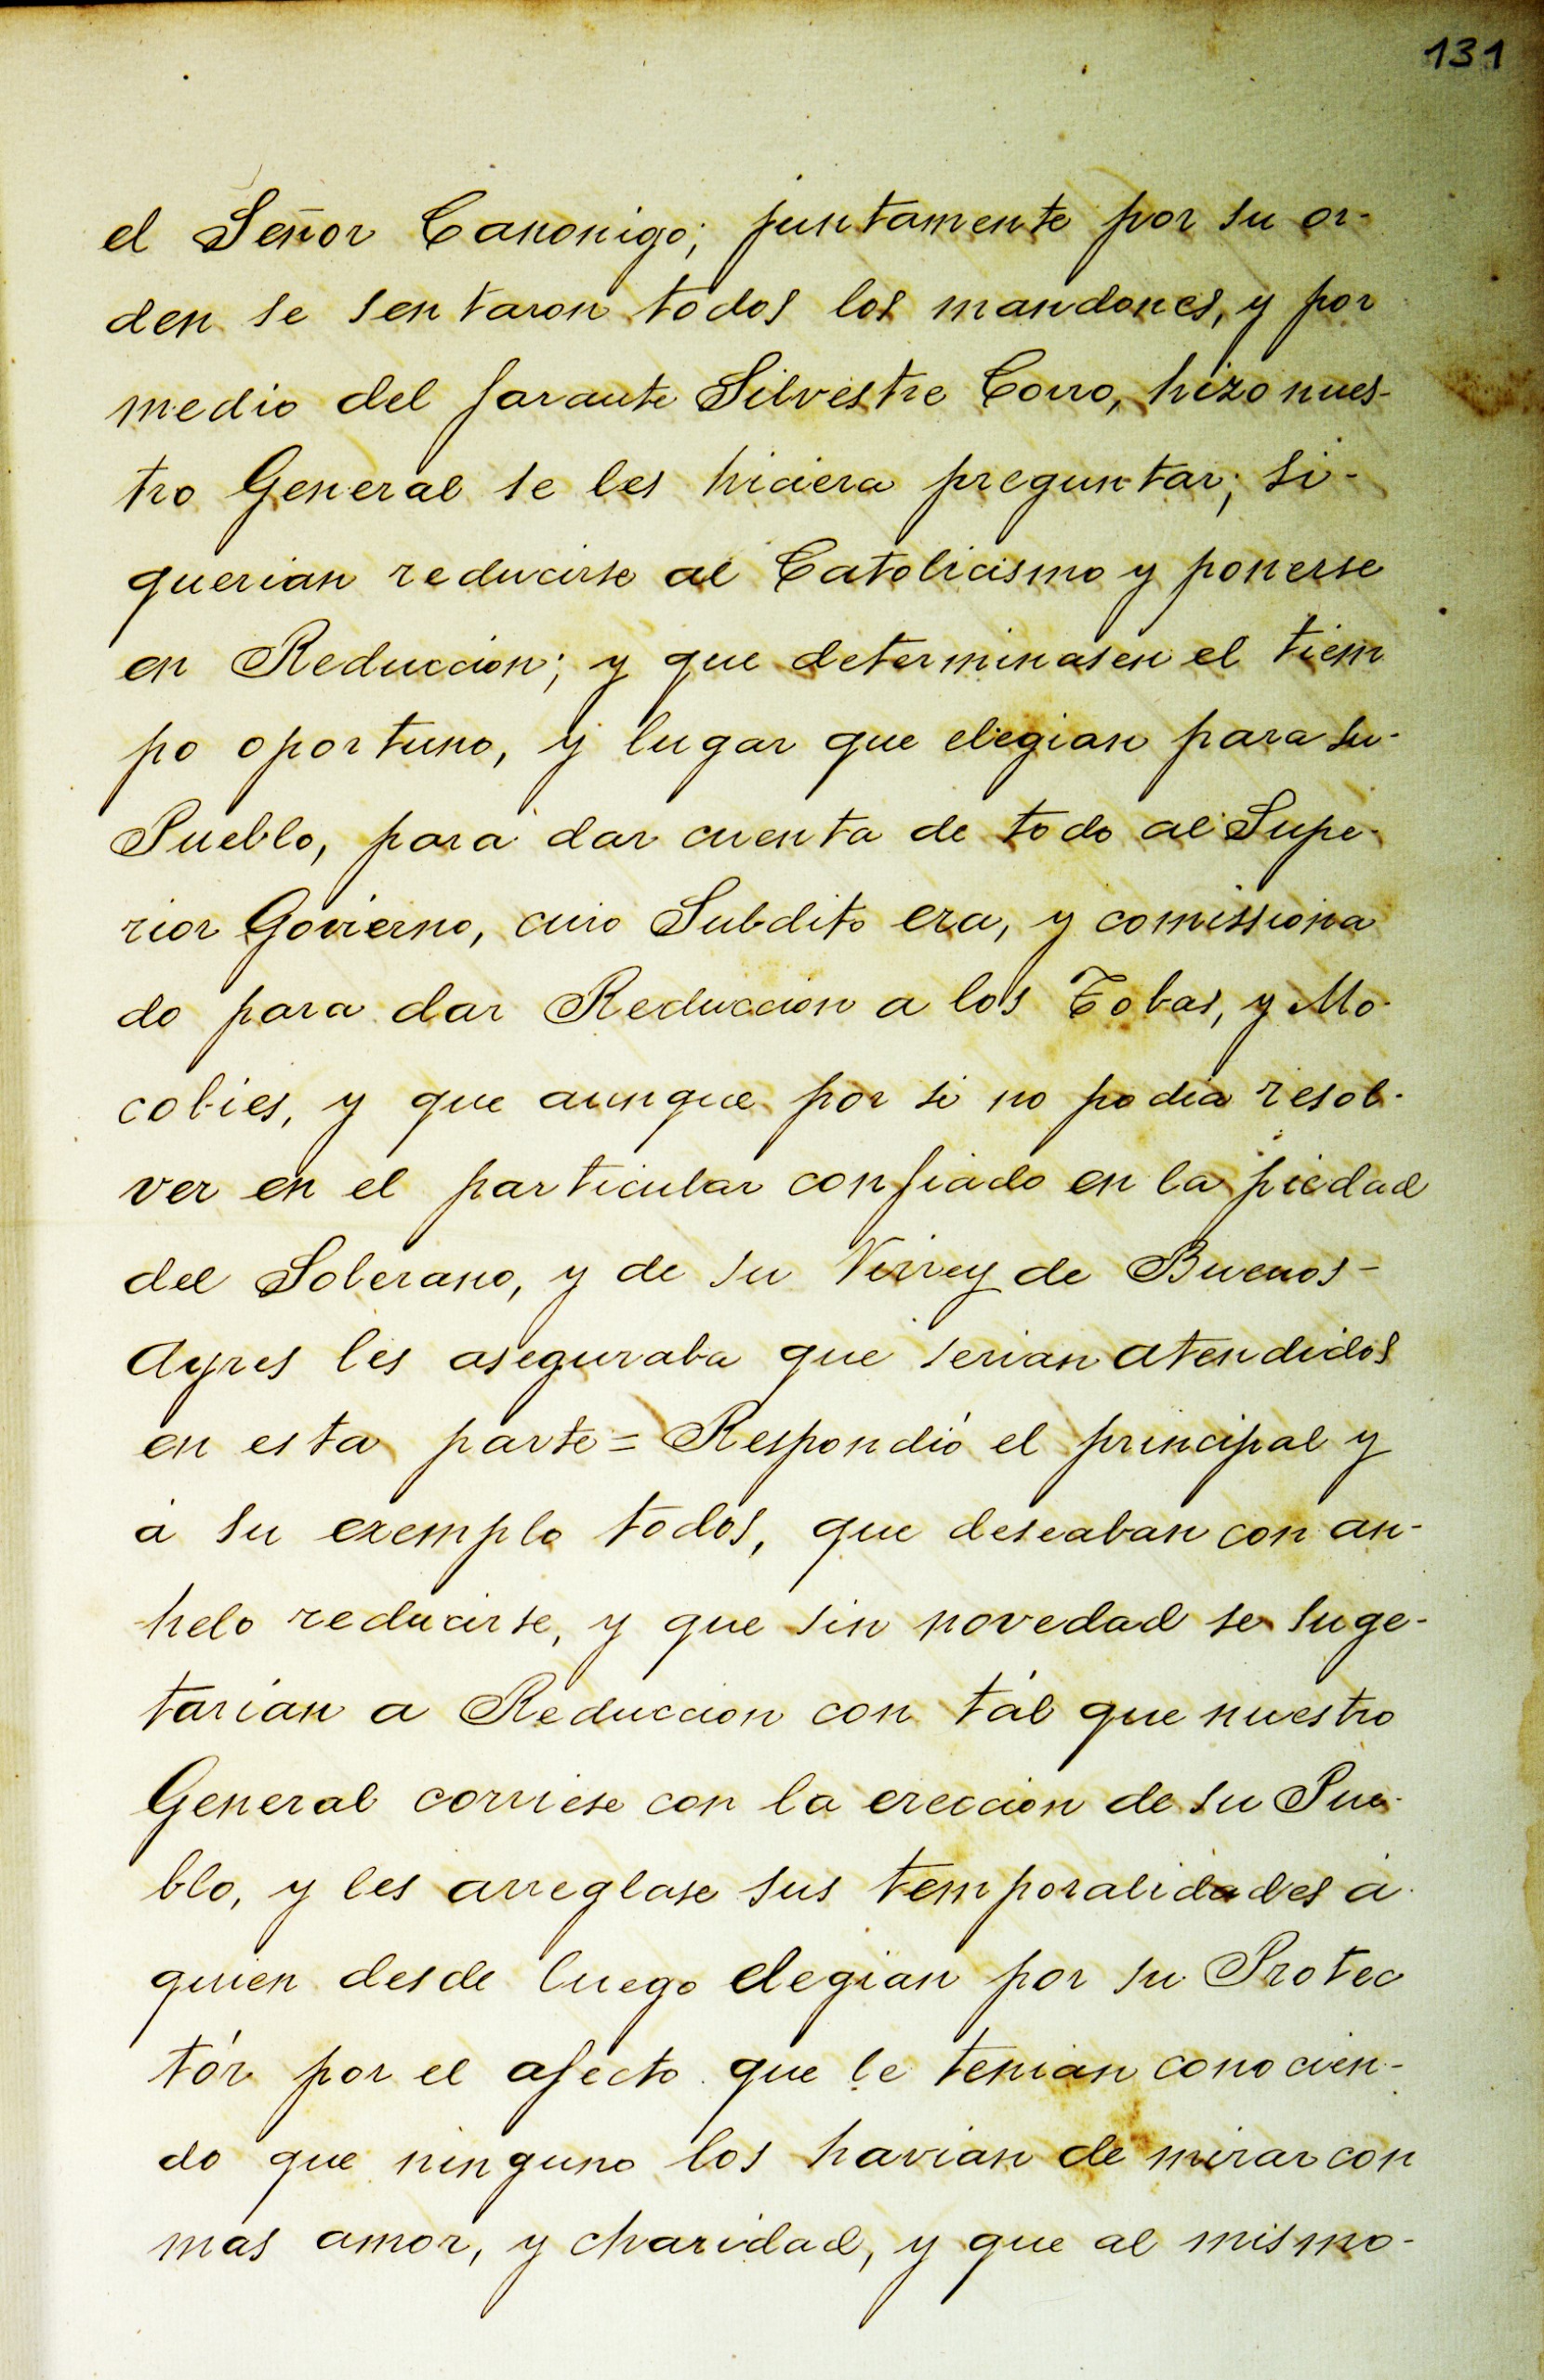 131
el Señor Canonigo; juntamente por su or-
den se sentaron todos los mandones, y por
medio del farante Silvestre Corro, hizo nues-
tro General se les hiciera preguntar; si-
querian reducirse al Catolicismo y ponerse
en Reduccion; y que determinasen el tiem
po oportuno, y lugar que elegian para su-
Pueblo, para dar cuenta de todo al Supe-
rior Govierno, cuio Subdito era, y comissiona
do para dar Reduccion a los Tobas, y Mo-
cobies, y que aunque por si no podia resol-
ver en el particular confiado en la piedad
del Soberano, y de su Virrey de Buenos-
Ayres les aseguraba que serian atendidos
en esta parte = Respondió el principal y
á su exemplo todos, que deseaban con an-
helo reducirse, y que sin novedad se suge-
tarian a Reduccion con tál que nuestro
General corriese con la ereccion de su Pue-
blo, y les arreglase sus temporalidades á
quien desde luego elegian por su Protec
tór por el afecto que le tenian conocien-
do que ninguno los havian de mirar con
mas amor, y charidad, y que al mismo-